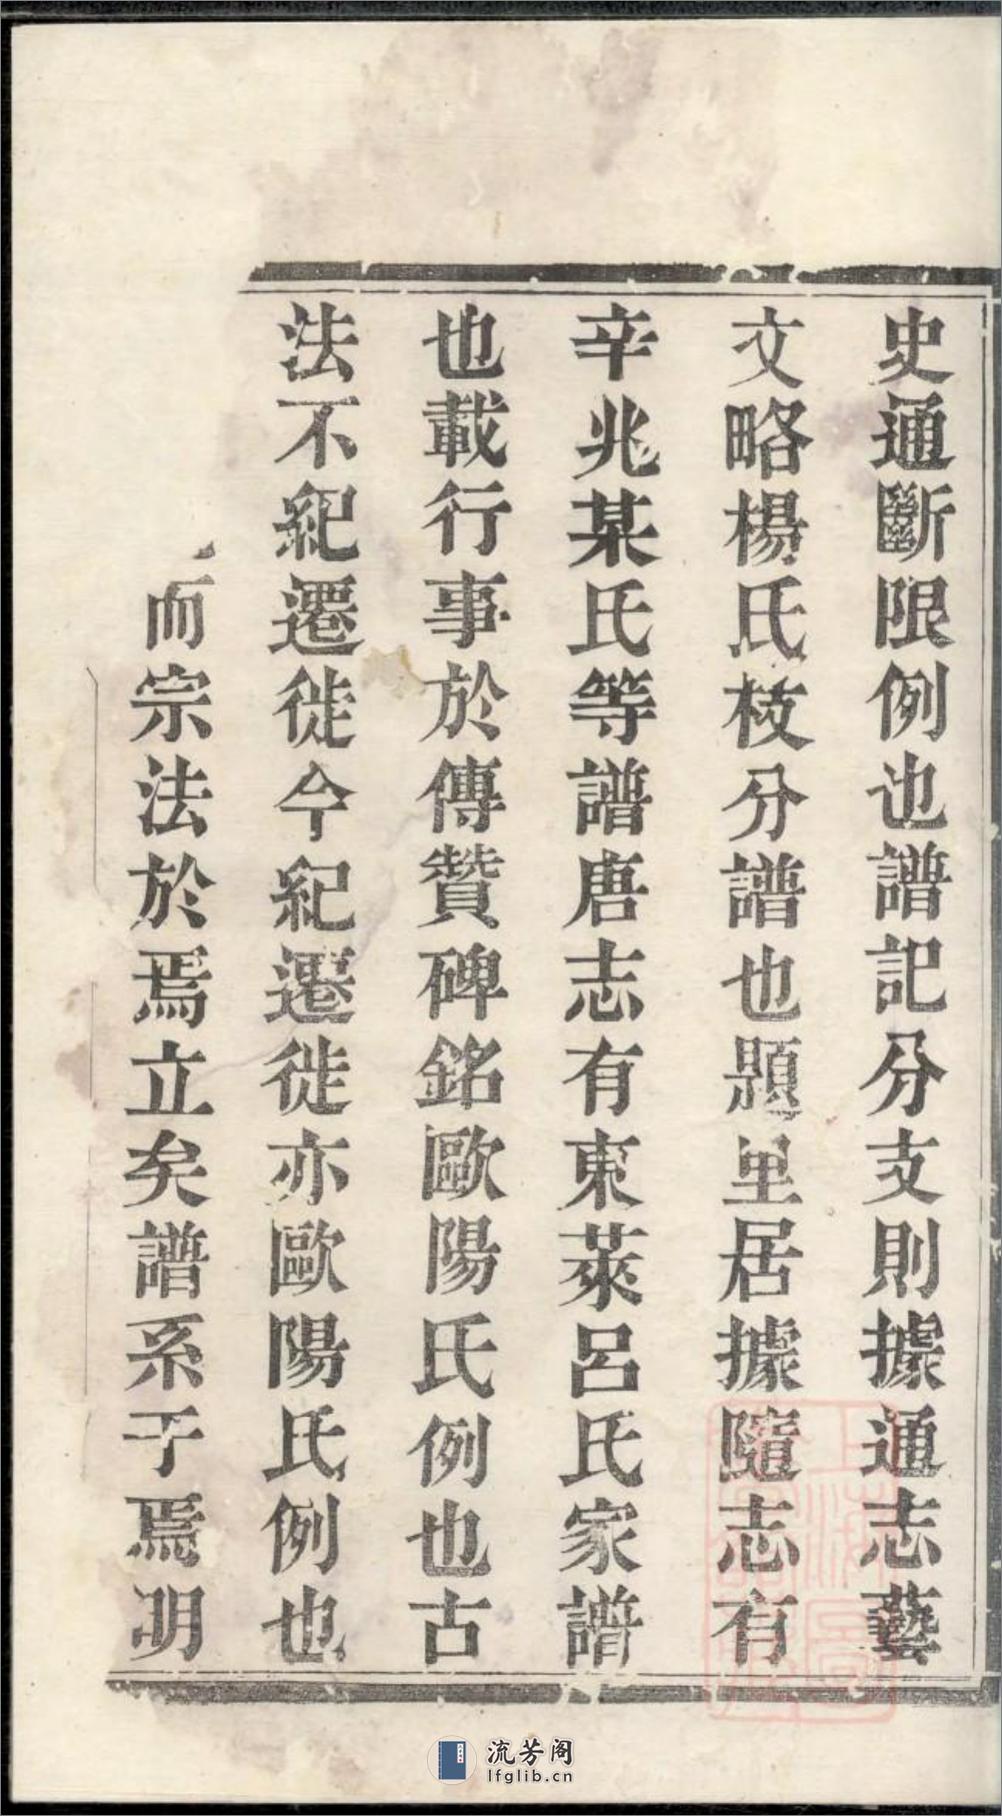 史通斷限例也譜記分支則據通志藝
文略楊氏枝分譜也題里居據隨志有
辛兆某氏等譜唐志有東萊呂氏家譜
也載行事於傳贊碑銘歐陽氏例也古
法不紀遷徙今紀遷徙亦歐陽氏例也
而宗法於焉立矣譜系于焉明
流芳阁
lfglib.cn